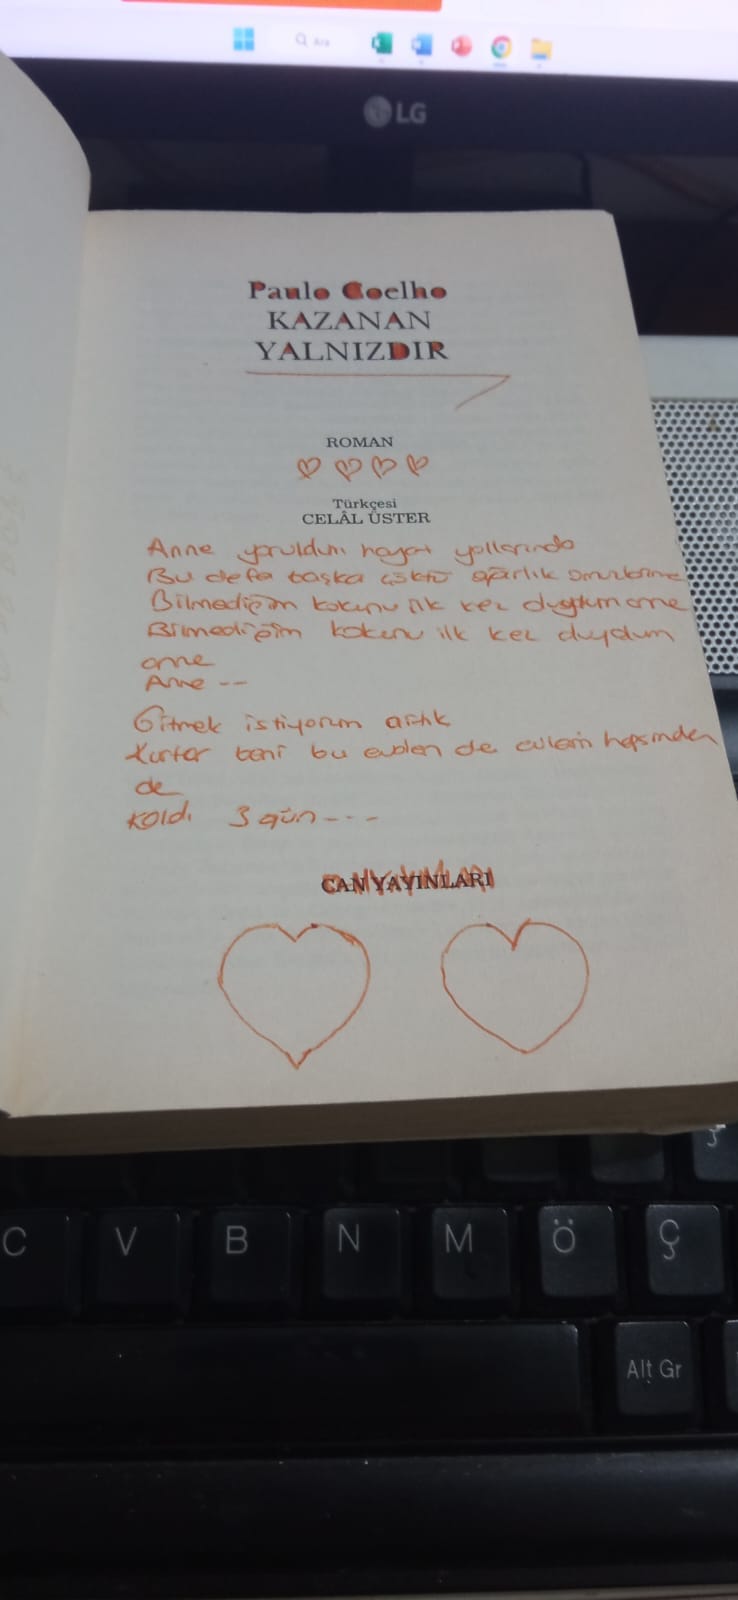 Ara
LG
Paulo Coelho
KAZANAN
YALNIZDIR
ROMAN
Türkçesi
CELÂL ÜSTER
Anne yoruldum hayat yollarında
Bu defa başka çöktü ağırlık omuzlarıma
Bilmediğim kokunu ilk kez duydum anne
Bilmediğim kokunu ilk kez duydum
anne
Anne --
Gitmek istiyorum artık
Kurtar beni bu evden de evlerin hepsinden
de
Kaldı 3 gün ---
CAN YAYINLARI
C V B N M Ö Ç
Alt Gr